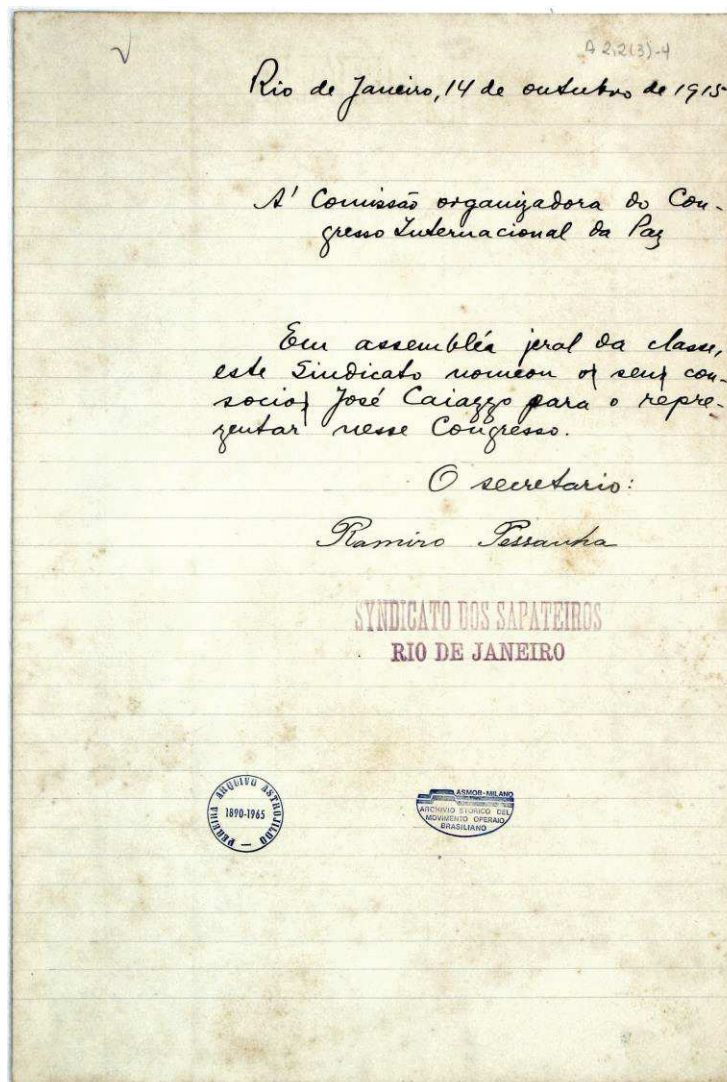 A 2.2(3)-4
Rio de Janeiro, 14 de outubro de 1915
A' Comissão organizadora do Con-
gresso Internacional da Paz
Em assembléa jeral da classe,
este Sindicato nomeou os seus con-
socios José Caiazzo para o repre-
zentar nesse Congresso.
O secretario:
Ramiro Pessanha
SYNDICATO DOS SAPATEIROS
RIO DE JANEIRO
ARQUIVO ASTROJILDO PEREIRA
1890-1965
ASMOB-MILANO
ARCHIVIO STORICO DEL
MOVIMENTO OPERAIO
BRASILIANO